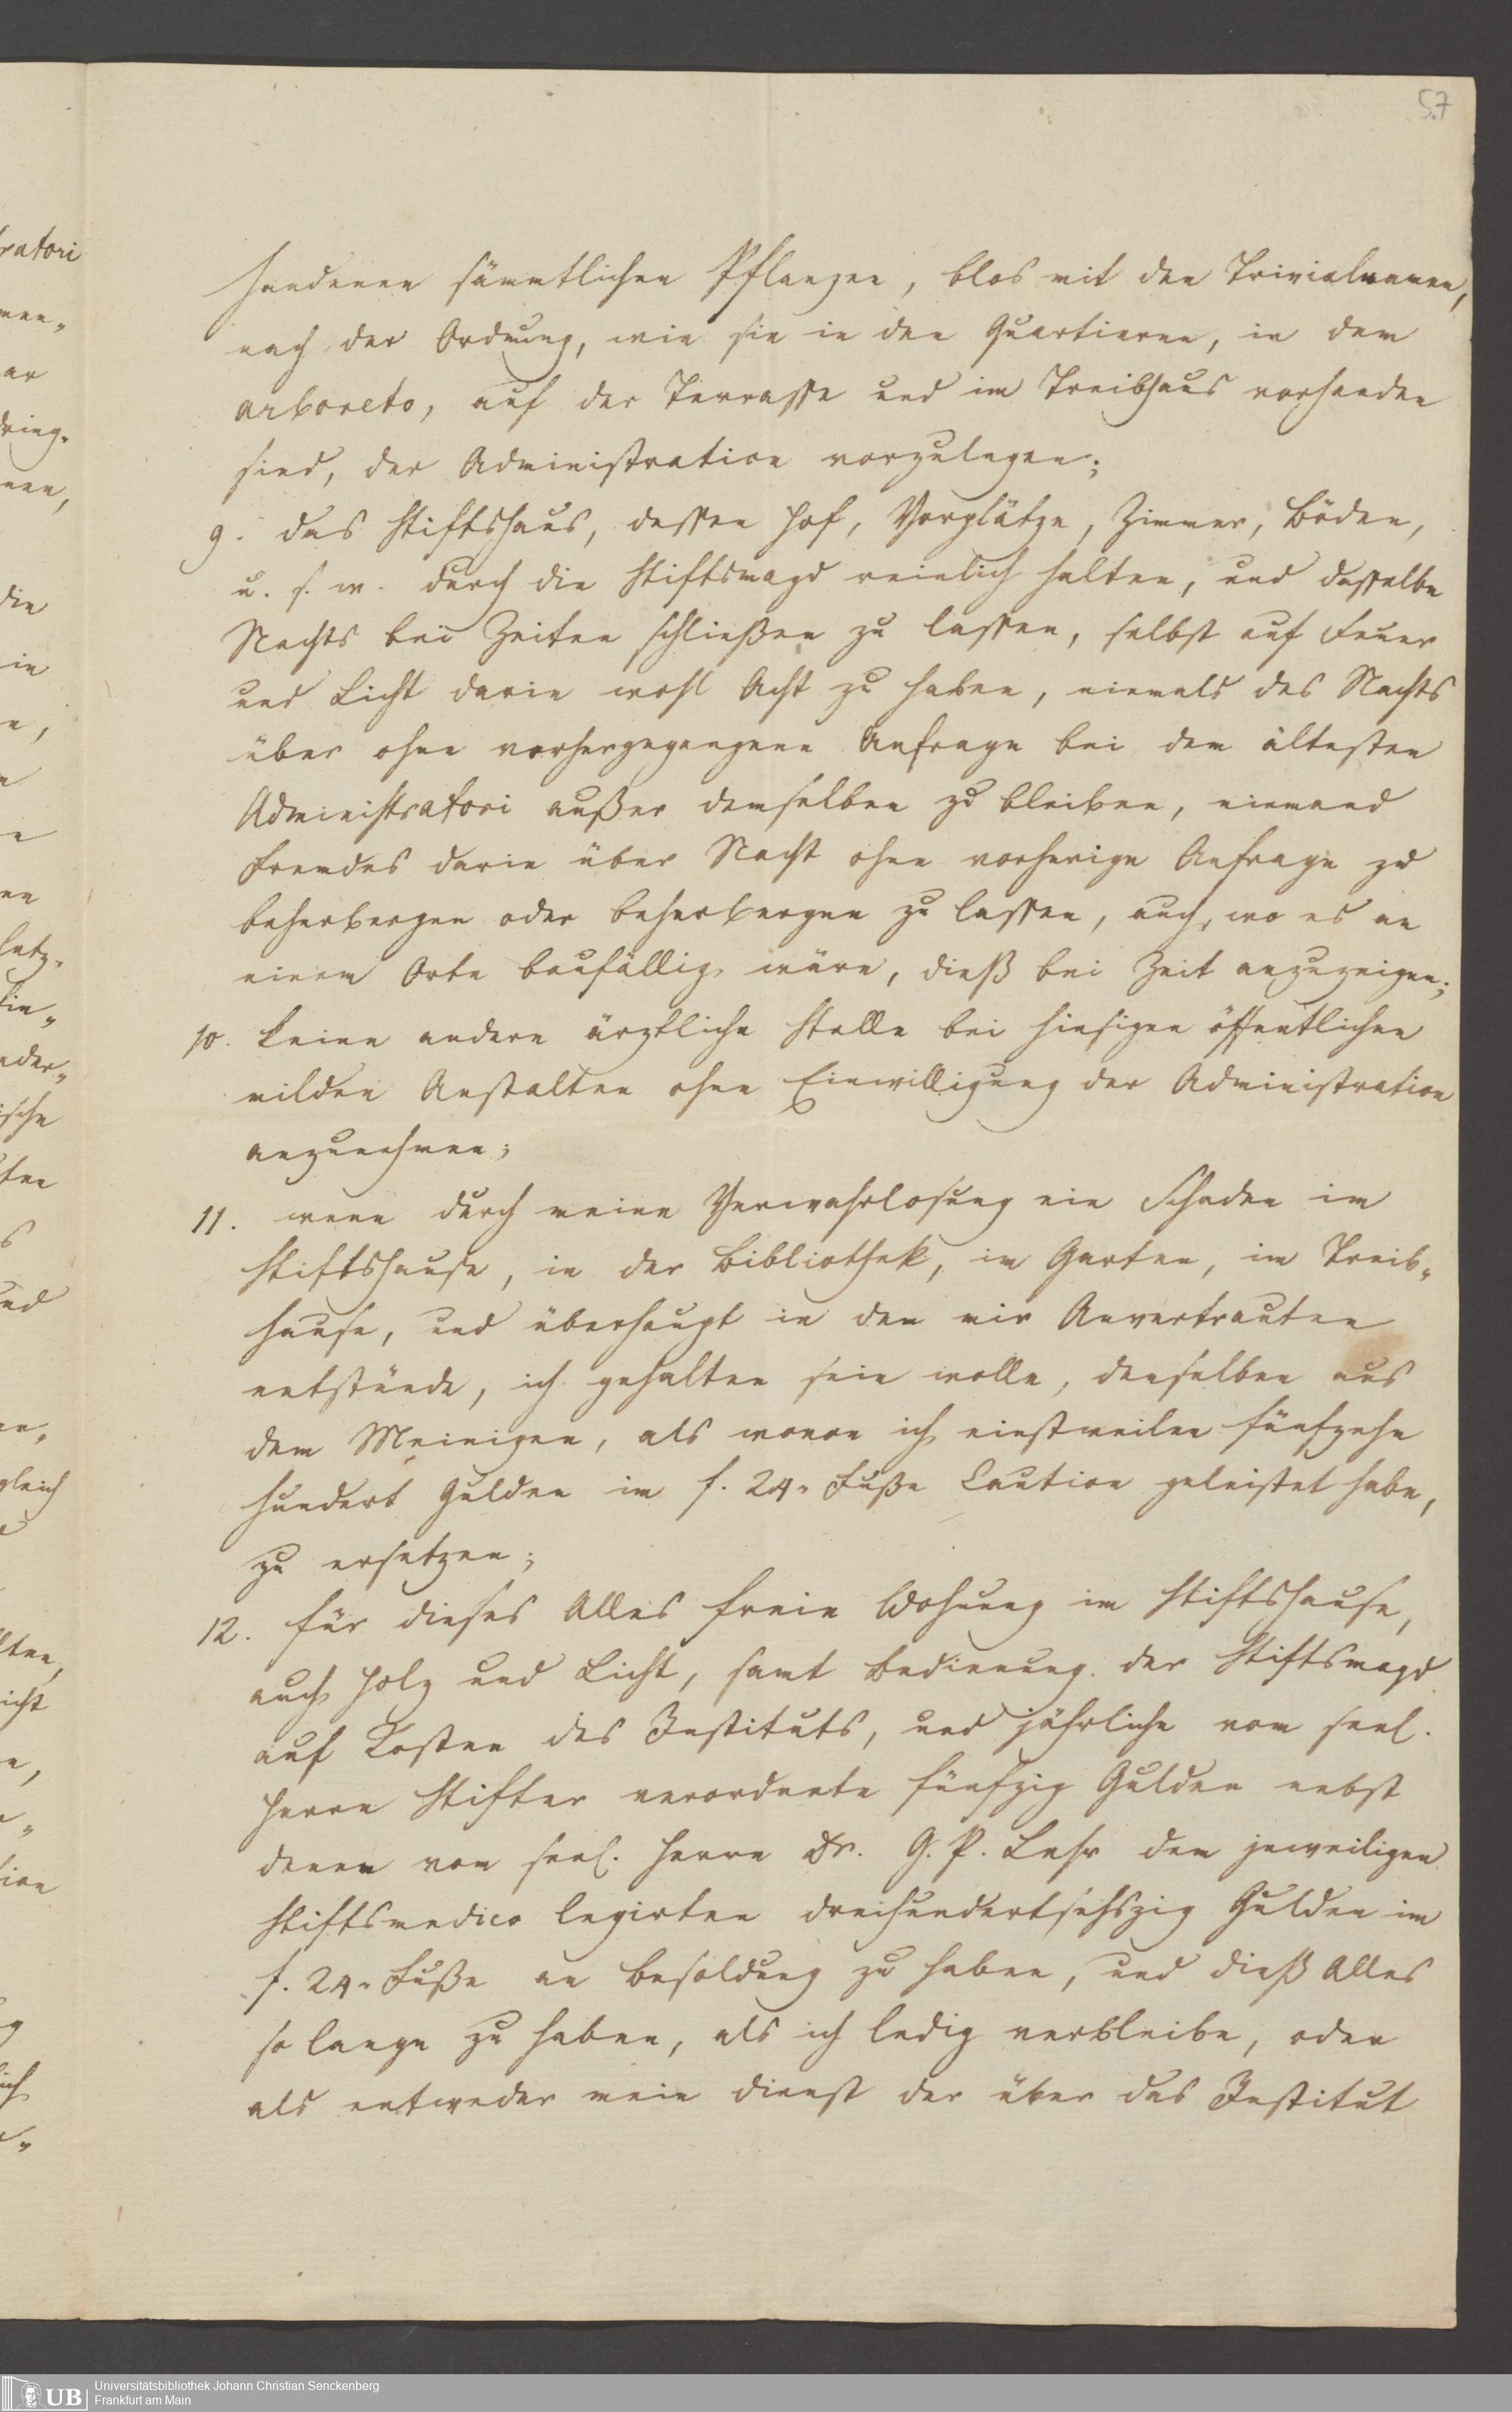 57
handenen sämmtlichen Pflanzen, blos mit den Trivialnamen,
nach der Ordnung, wie sie in den Quartieren, in dem
arboreto, auf der Terrasse und im Treibhaus vorhanden
sind, der Administration vorzulegen;
9. das Stiftshaus, dessen Hof, Vorplätze, Zimmer, Böden,
u. s. w. durch die Stiftsmagd reinlich halten, und dasselbe
Nachts bei Zeiten schließen zu lassen, selbst auf Feuer
und Licht darin wohl Acht zu haben, niemals des Nachts
über ohne vorhergegangene Anfrage bei dem ältesten
Administratori außer demselben zu bleiben, niemand
Fremdes darin über Nacht ohne vorherige Anfrage zu
beherbergen oder beherbergen zu lassen, auch, wo es an
einem Orte baufällig wäre, dieß bei Zeit anzuzeigen;
10. keine andere ärztliche Stelle bei hiesigen öffentlichen
milden Anstalten ohne Einwilligung der Administration
anzunehmen;
11. wenn durch meine Verwahrlosung ein Schaden im
Stiftshause, in der Bibliothek, im Garten, im Treib-
hause, und überhaupt in dem mir Anvertrauten
entstünde, ich gehalten sein wolle, denselben aus
dem Meinigen, als wovon ich einstweilen fünfzehn
hundert Gulden im f. 24-Fuße Caution geleistet habe,
zu ersetzen;
12. für dieses Alles freie Wohnung im Stiftshause,
auch Holz und Licht, samt Bedienung der Stiftsmagd
auf Kosten des Instituts, und jährliche vom seel.
Herrn Stifter verordnete fünfzig Gulden nebst
denen vom seel. Herrn Dr. G. P. Lehr dem jeweiligen
Stiftsmedico legirten dreihundertsechszig Gulden im
f. 24-Fuße an Besoldung zu haben, und dieß Alles
so lange zu haben, als ich ledig verbleibe, oder
als entweder mein Dienst der über das Institut
UB
Universitätsbibliothek Johann Christian Senckenberg
Frankfurt am Main